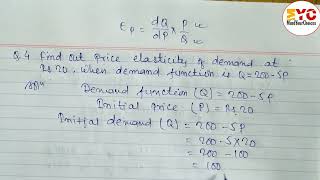 EYC
εp = dQ/dP × P/Q
Q.4 Find out Price elasticity of demand at
Rs 20, when demand function is Q=200-5P
Soln Demand function (Q) = 200-5P
Initial Price (P) = Rs 20
Initial demand (Q) = 200-5P
= 200-5×20
= 200-100
= 100